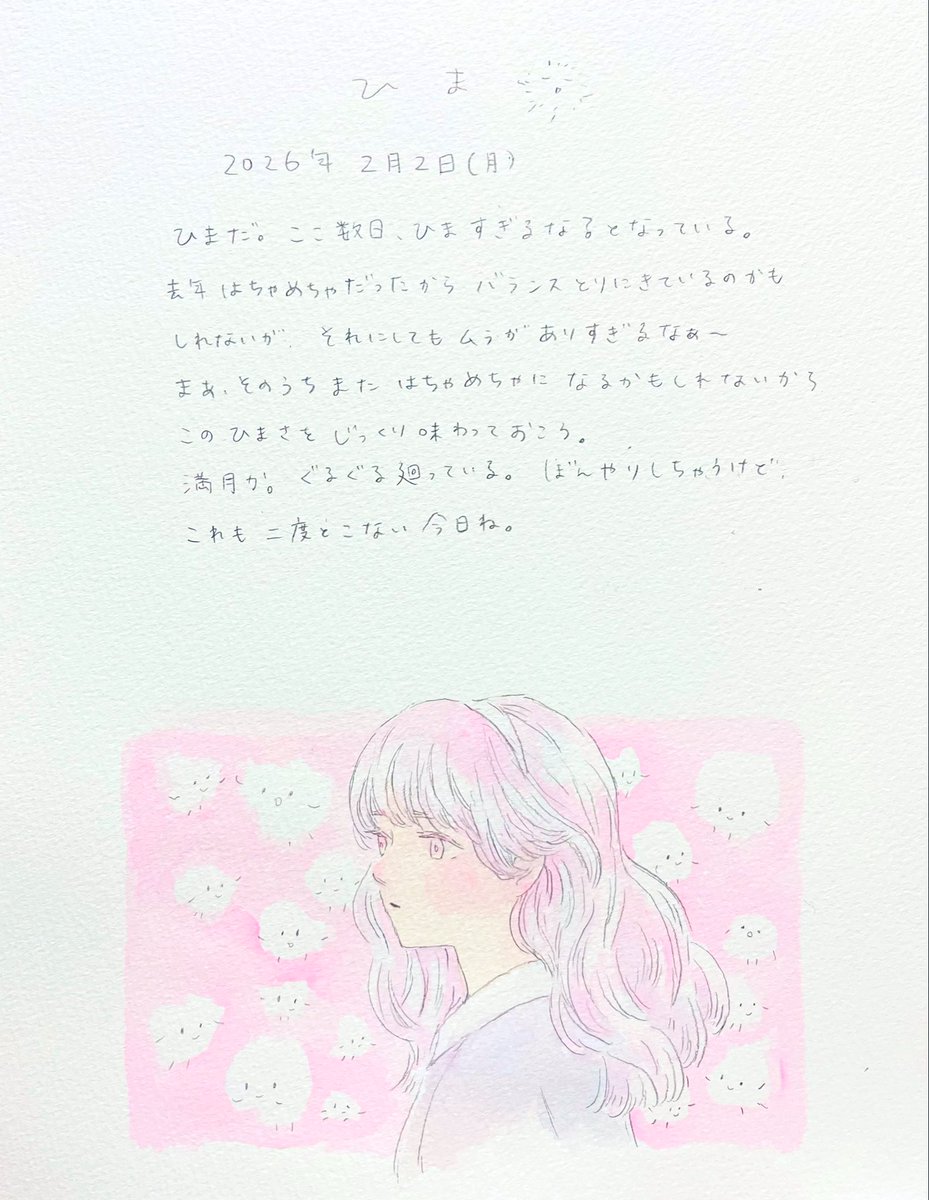 ひま
2026年 2月2日(月)
ひまだ。ここ数日、ひますぎるなるとなっている。
去年はちゃめちゃだったから バランスとりにきているのかも
しれないが、それにしてもムラがありすぎるなぁ〜
まあ、そのうちまた はちゃめちゃに なるかもしれないから
このひまさを じっくり味わっておこう。
満月か。ぐるぐる廻っている。ぼんやりしちゃうけど、
これも 二度とこない 今日ね。